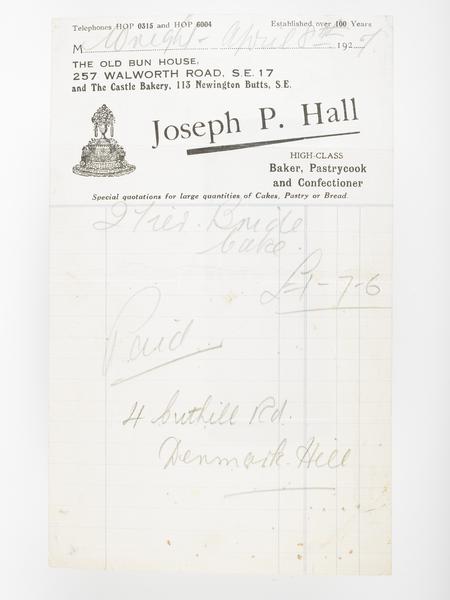 Telephones HOP 0315 and HOP 6004 Established over 100 Years
M Wright - April 8th 1927
THE OLD BUN HOUSE,
257 WALWORTH ROAD, S.E. 17
and The Castle Bakery, 113 Newington Butts, S.E.
Joseph P. Hall
HIGH-CLASS
Baker, Pastrycook
and Confectioner
Special quotations for large quantities of Cakes, Pastry or Bread.
2 Tier Bride
Cake.
£1-7-6
Paid
4 Cuthill Rd.
Denmark Hill